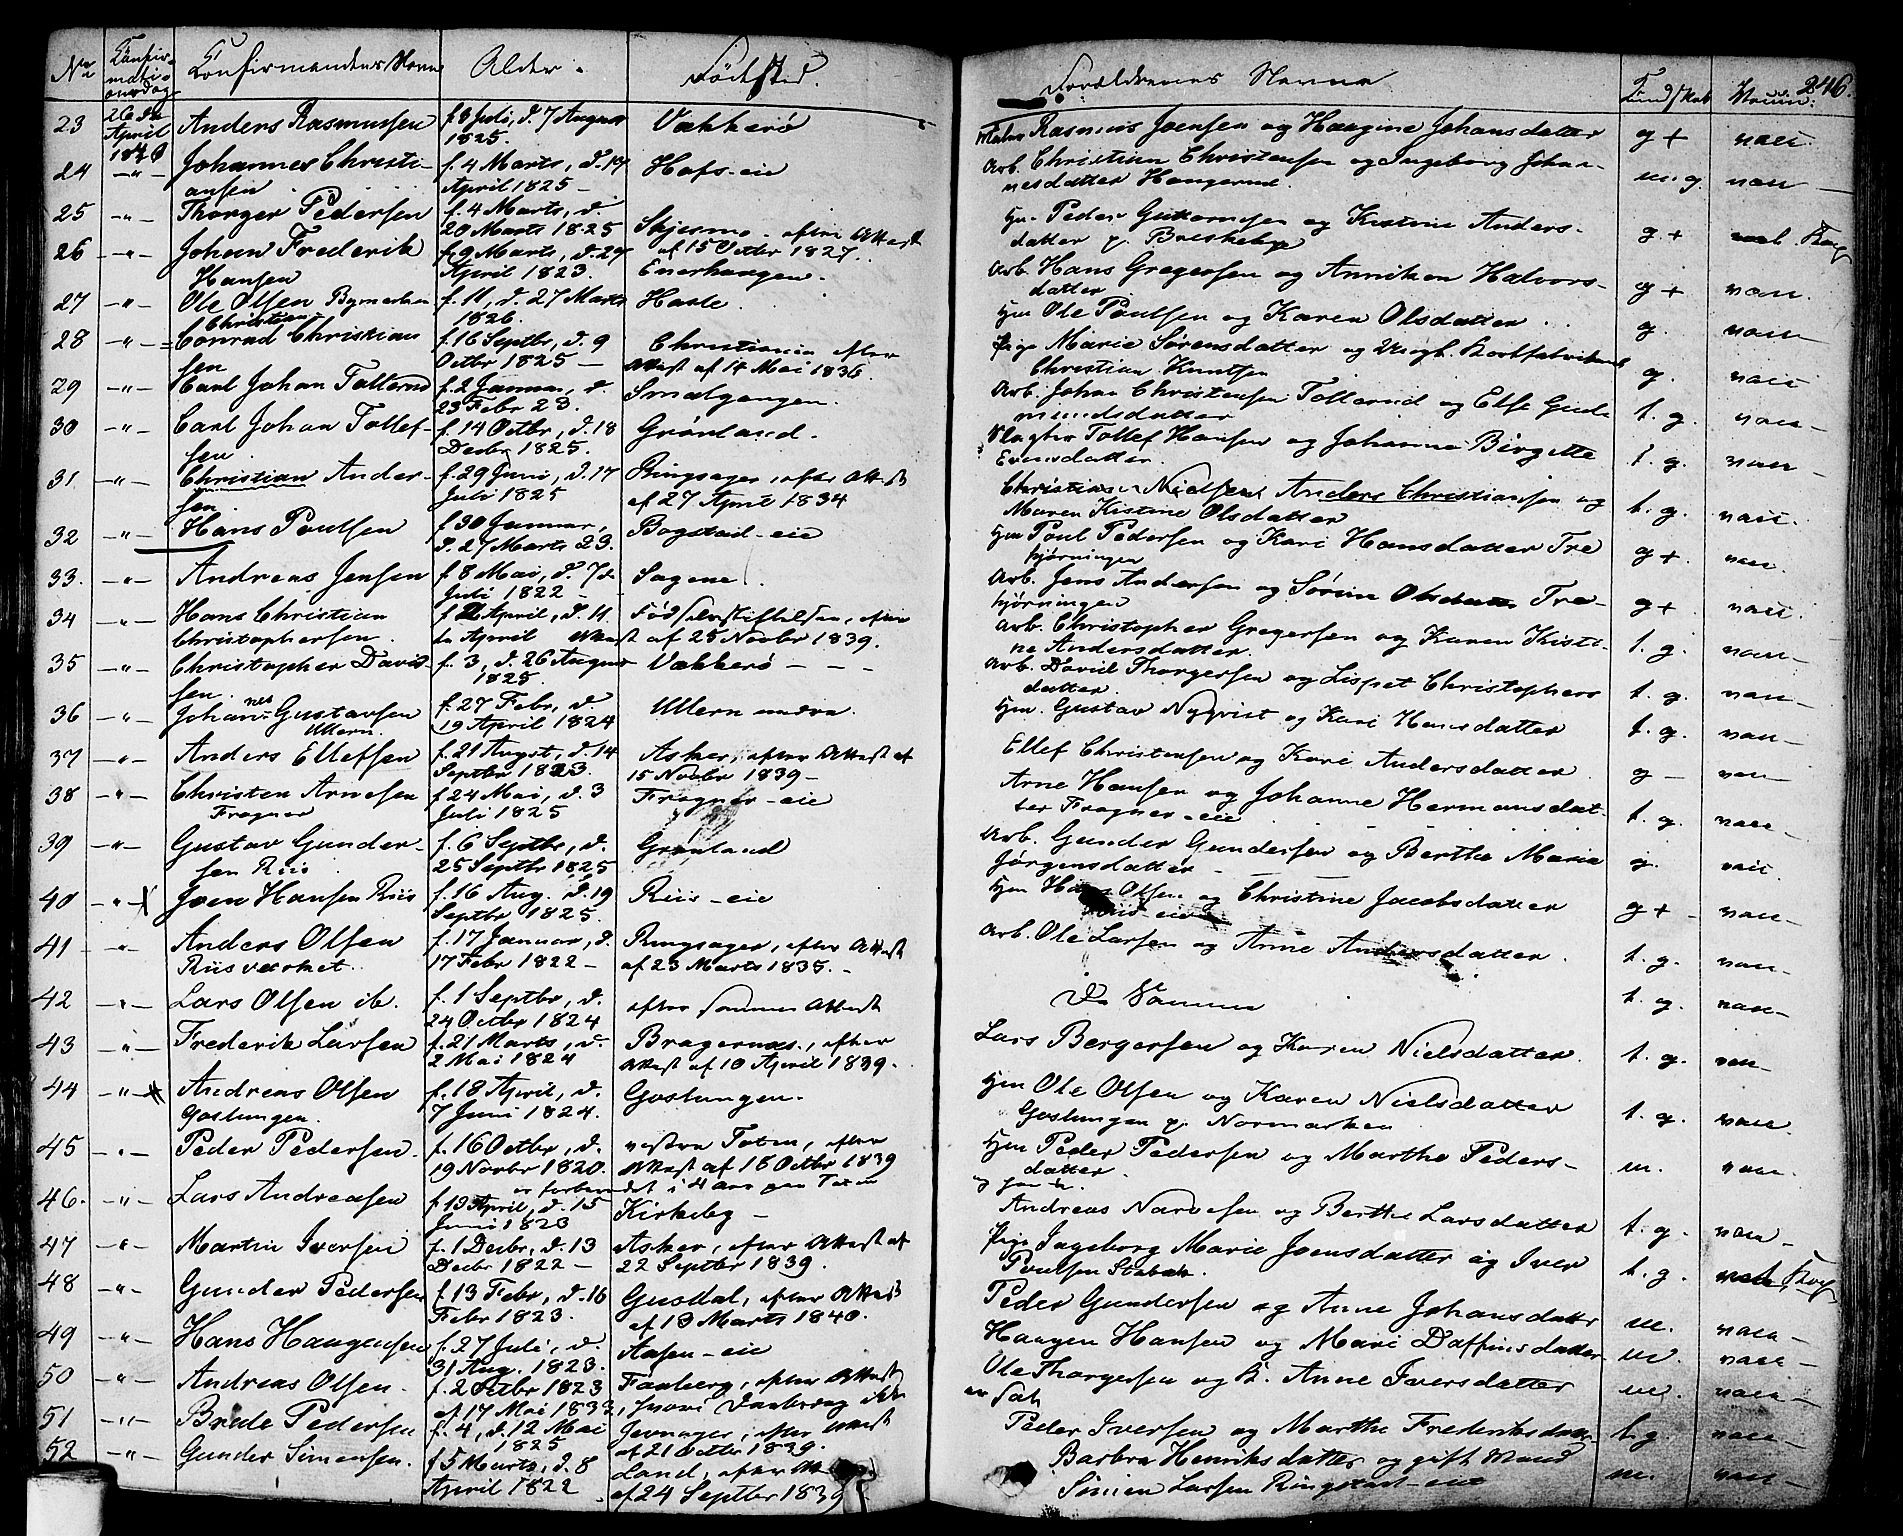 246.
No Confirmations dag Confirmandens Navn Alder. Fødested Forældrenes Navne Kundskab Vaccin.
23 26de April 1840 Anders Rasmussen f. 8 Juli, d. 7 August 1825. Vækkerø Rasmus Joensen og Haagine Johansdatter g + vacc.
24 -"- Johannes Christiansen f. 4 Marts, d. 17 April 1825 - Hofs-eie Arb. Christian Christensen og Ingeborg Johannesdatter m. g. vacc -
25 -"- Thorger Pedersen f. 4 Marts, d. 20 Marts 1825 Skjesmo - efter Attest af 15 Octbr 1827. Hm. Peder Guttormsen og Kistine Andersdatter p. Breskeby g +
26 -"- Johan Frederik Hansen f. 9 Marts, d. 27 April 1823. Enerhaugen. Arb. Hans Gregersen og Anniken Halvorsdatter g + vacc.
27 -"- Ole Olsen f. 11, d. 27 Marts 1826. Hasle. Hm Ole Poulsen og Karen Olsdatter g. vacc -
28 -"- Conrad Christian Christiansen f. 16 Septbr, d. 9 Octbr 1825 - Christiania efter Attest af 14 Mai 1836. Pige Marie Sørensdatter og Christian Knutsen g. vacc
29 -"- Carl Johan Tollerud f. 2 Januar, d. 23 Febr 23. Smalgangen. Arb. Johan Christensen Tollerud og Else Gudmundsdatter t. g. vacc -
30 -"- Carl Johan Tollefsen f. 14 Octbr, d. 18 Decbr 1825. Grønland. Slagter Tollef Hansen og Johanne Birgitte Evensdatter. t. g. vacc -
31. -"- Christian Andersen. f. 29 Juni, d. 17 Juli 1825 Ringsager, efter Attest af 27 April 1834 Christian Nielsen Anders Christiansen og Maren Kistine Olsdatter t. g. vacc.
32 -"- Hans Poulsen f. 30 Januar, d. 27 Marts 23. Bogstad-eie Hm Poul Pedersen og Kari Hansdatter Trehjørningen g + vacc.
33. -"- Andreas Jensen f. 8 Mai, d. 7de Juli 1822 - Sagene. Arb. Jens Andersen og Sørine Olsdatter Trehjørningen g + vacc
34 -"- Hans Christian Christophersen. f. 2 April, d. 11. April Fødselsstiftelsen, efter Attest af 25 Novbr 1839. Arb. Christopher Gregersen og Karen Kistine Andersdatter. t. g. vacc -
35 -"- Christopher Davidsen. f. 3, d. 26 August 1825. Vækkerø - - - Arb. David Thorgersen og Lispet Christophersdatter t. g. vacc -
36 -"- Johannes Gustavsen Ullern. f. 27 Febr, d. 19 April 1824 Ullern nedre. Hm. Gustav Nyqvist og Kari Hansdatter t. g. vacc -
37 -"- Anders Ellefsen f. 21 August, d. 14 Septbr 1823. Asker, efter Attest af 15 Novbr 1839 - Ellef Christensen og Kari Andersdatter. g - vacc -
38 -"- Christen Arnesen Frogner f. 24 Mai, d. 3 Juli 1825 Frogner-eie Arne Hansen og Johanne Hermansdatter Frogner-eie t. g. vacc -
39 -"- Gustav Gundersen Riis. f. 6 Septbr, d. 25 Septbr 1825 Grønland Arb. Gunder Gundersen og Berthe Maria Jørgensdatter - g. vacc
40 -"- Joen Hansen Riis f. 16 Aug. d. 19 Septbr 1825. Riis-eie Hm Hans Olsen og Christine Jacobsdatter Riis-eie g + vacc -
41 -"- Anders Olsen Riisværket. f. 17 Januar, d. 17 Febr 1822 - Ringsager, efter Attest af 23 Marts 1835. - Arb. Ole Larsen og Anne Andersdatter. t. g. vacc -
42 -"- Lars Olsen ib. f. 1 Septbr, d. 24 Octbr 1824 efter samme Attest De Samme t. g. vacc -
43 -"- Frederik Larsen f. 21 Marts, d. 2 Mai 1824 Bragernæs, efter Attest af 10 April 1839. Lars Bergersen og Karen Nielsdatter. t. g. vacc -
44 -"- Andreas Olsen Gaslungen. f. 18 April, d. 7 Juni 1824. Gaslungen. Hm Ole Olsen og Karen Nielsdatter Gaslungen p. Normarken t. g. vacc.
45 -"- Peder Pedersen. f. 16 Octbr, d. 19 Novbr 1820. vestre Toten, efter Attest af 18 Octbr 1839 Hm Peder Pedersen og Marthe Pedersdatter. m. vacc -
46. -"- Lars Andreasen f. 13 April, d. 15 Juni 1823 Kirkeby - Andreas Narvesen og Berthe Larsdatter t. g. vacc -
47 -"- Martin Iversen f. 1 Decbr, d. 13 Decbr 1822 - Asker, efter Attest af 22 Septbr 1839. Pige Ingeborg Marie Joensdatter og Iver Poulsen Stabæk. t. g.
48 -"- Gunder Pedersen f. 13 Febr, d. 16 Febr 1823. Gusdal, efter Attest af 13 Marts 1840. Peder Gundersen og Anne Johansdatter m. vacc -
49 -"- Hans Haagensen f. 27 Juli, d. 31 Aug. 1823. Aasen-eie Haagen Hansen og Mari Daffinsdatter m. vacc -
50 -"- Andreas Olsen. f. 2 Octbr 1823 Faaberg, efter Attest af 17 Mai 1833, Ole Thorgersen og K. Anne Iversdatter m. vacc -
51 -"- Brede Pedersen f. 4, d. 12 Mai 1825 Jevnager, efter Attest af 21 Octbr 1839. Peder Iversen og Marthe Frederiksdatter t. g. vacc -
52 -"- Gunder Simensen. f. 5 Marts, d. 8 April 1822 Land, efter Attest af 24 Septbr 1839 Barbra Henriksdatter og gift Mand Simen Larsen Ringstad-eie m. vacc -